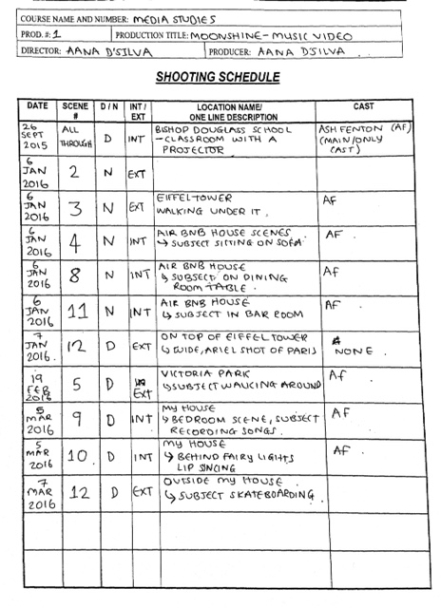 COURSE NAME AND NUMBER: MEDIA STUDIES
PROD. #: 1 PRODUCTION TITLE: MOONSHINE - MUSIC VIDEO
DIRECTOR: AANA D'SILVA PRODUCER: AANA DSILVA
SHOOTING SCHEDULE
DATE SCENE # D / N INT / EXT LOCATION NAME/ ONE LINE DESCRIPTION CAST
26 SEPT 2015 ALL THROUGH D INT BISHOP DOUGLASS SCHOOL - CLASSROOM WITH A PROJECTOR ASH FENTON (AF) (MAIN/ONLY CAST)
6 JAN 2016 2 N EXT
6 JAN 2016 3 N EXT EIFFEL TOWER WALKING UNDER IT. AF
6 JAN 2016 4 N INT AIR BNB HOUSE SCENES ↳ SUBJECT SITTING ON SOFA AF
6 JAN 2016 8 N INT AIR BNB HOUSE ↳ SUBJECT ON DINING ROOM TABLE. AF
6 JAN 2016 11 N INT AIR BNB HOUSE ↳ SUBJECT IN BAR ROOM AF
7 JAN 2016. 12 D EXT ON TOP OF EIFFEL TOWER ↳ GUIDE, ARIEL SHOT OF PARIS NONE.
19 FEB 2016 5 D EXT VICTORIA PARK ↳ SUBJECT WALKING AROUND AF
5 MAR 2016 9 D INT MY HOUSE ↳ BEDROOM SCENE, SUBJECT RECORDING SONGS. AF
5 MAR 2016 10 D INT MY HOUSE ↳ BEHIND FAIRY LIGHTS LIP SINCING AF
7 MAR 2016 12 D EXT OUTSIDE MY HOUSE. ↳ SUBJECT SKATEBOARDING.